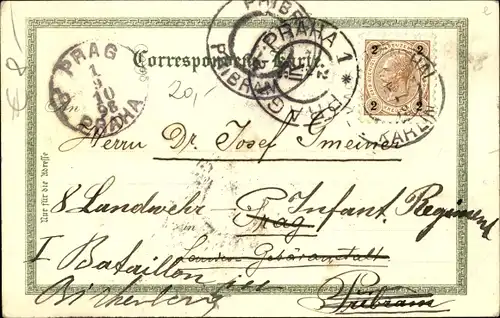 Correspondenz-Karte.
PRAG
1
5
10
98
PRAHA
PRIBRAM
PRAHA 1
PRAG
2 2
2 2
KARLIN
20,-
An
Herrn Dr. Josef Gmeiner
Nur für die Adresse
8 Landwehr Infant. Regiment
in Prag
Landes Gebäranstalt
I Bataillon
Přibram